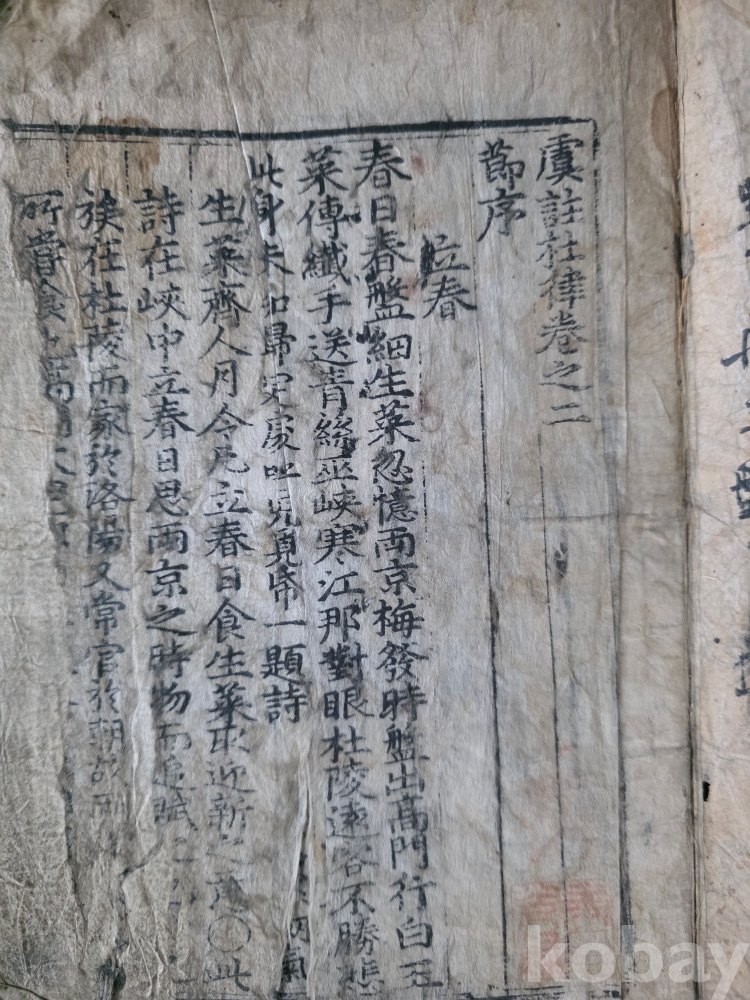 虞註杜律卷之二
節序
立春
春日春盤細生菜忽憶兩京梅發時盤出高門行白玉
菜傳纖手送青絲巫峽寒江那對眼杜陵遠客不勝悲
此身未知歸定處呼兒覓紙一題詩
生菜齊人月令凡立春日食生菜取近新之意〇此
詩在峽中立春日思兩京之時物而追賦之
族在杜陵而家於洛陽又常官於朝故兩
所嘗食也
kobay